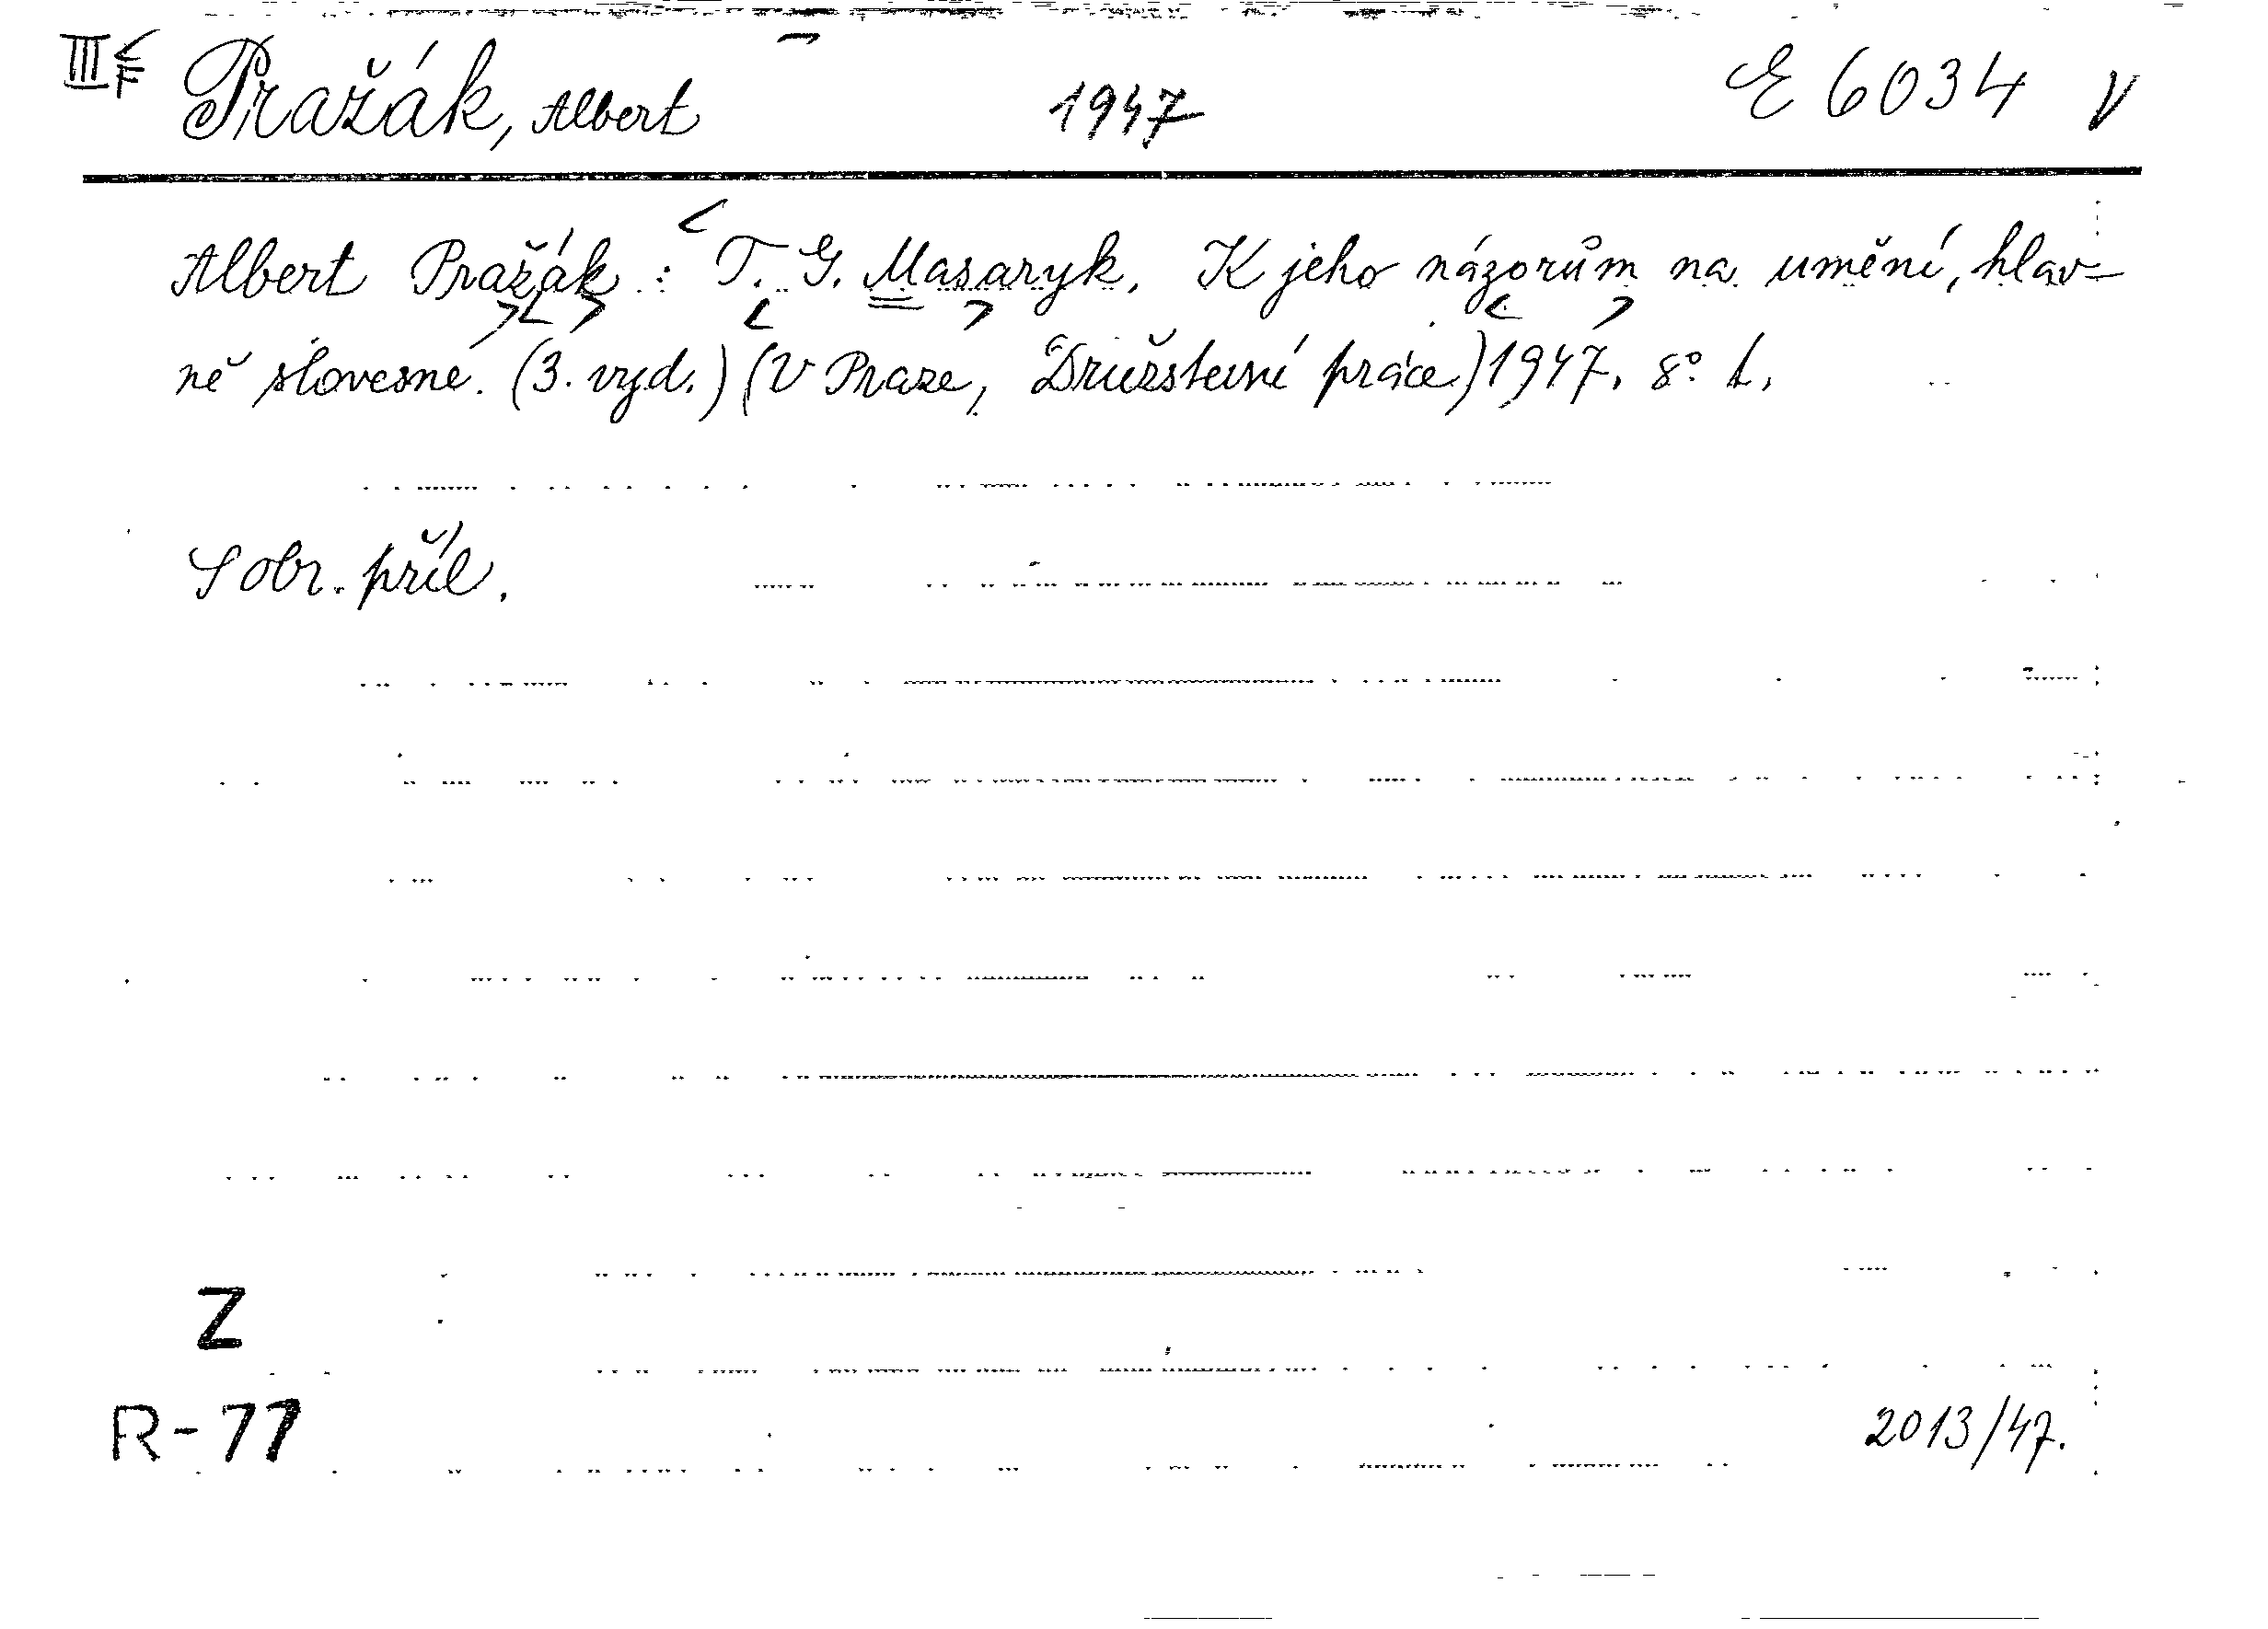 III F Pražák, Albert 1947 E 6034 V
Albert Pražák: T. G. Masaryk. K jeho názorům na umění, hlav-
ně slovesné. (3. vyd.) (V Praze, Družstevní práce) 1947. 8°.
S obr. příl.
Z
R-77
2013/47.